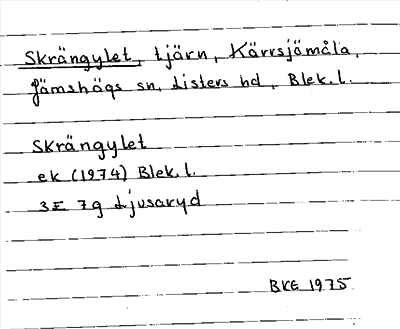 Skrängylet, tjärn, Kärrsjömåla,
Jämshögs sn, Listers hd, Blek.l.
Skrängylet
ek (1974) Blek.l.
3E 7g Ljusaryd
BKE 1975